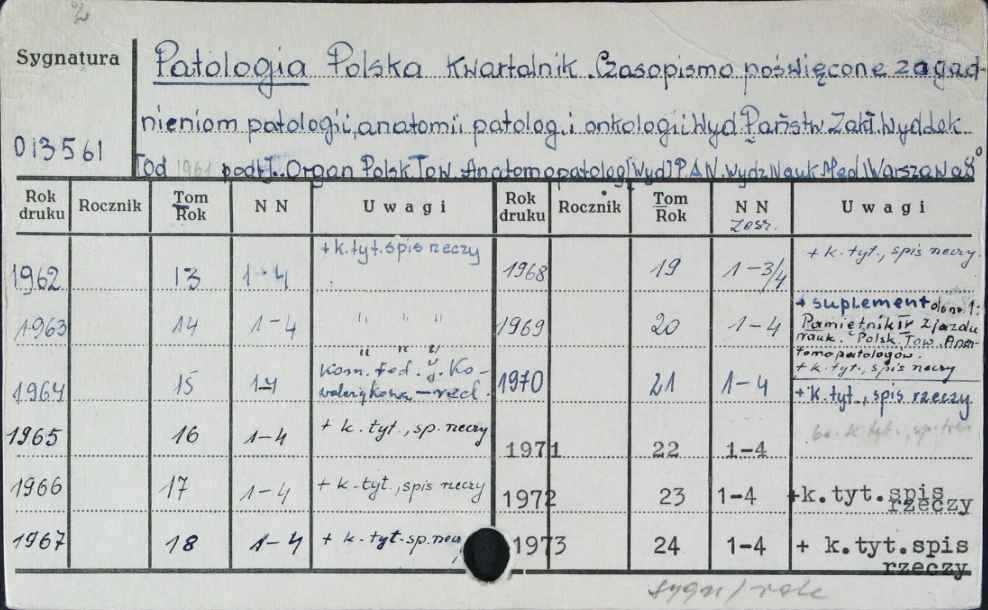 2
Sygnatura
Patologia Polska Kwartalnik. Czasopismo poświęcone zagad-
nieniom patologii, anatomii patolog. i onkologii. Wyd. Państw. Zakł. Wyd. Lek.
013561
[od 1961 podtł.. Organ Polsk. Tow. Anatomopatolog [Wyd] P.A.N. Wydz Nauk Med. Warszawa 8°
Rok druku Rocznik Tom Rok N N Uwagi Rok druku Rocznik Tom Rok N N zesz. Uwagi
1962 13 1-4 + k. tyt. spis rzeczy 1968 19 1-3/4 + k. tyt., spis rzeczy.
1963 14 1-4 " " " 1969 20 1-4 + suplement do nr. 1: Pamiętnik IV Zjazdu Nauk. Polsk. Tow. Anatomopatologów. + k. tyt., spis rzeczy
1964 15 1-4 " " " Kom. red. 1970 21 1-4 + k. tyt., spis rzeczy
1965 16 1-4 + k. tyt., sp. rzeczy 1971 22 1-4
1966 17 1-4 + k. tyt., spis rzeczy 1972 23 1-4 +k.tyt.spis rzeczy
1967 18 1-4 + k. tyt. sp. rzeczy 1973 24 1-4 + k.tyt.spis rzeczy
sygn/rok